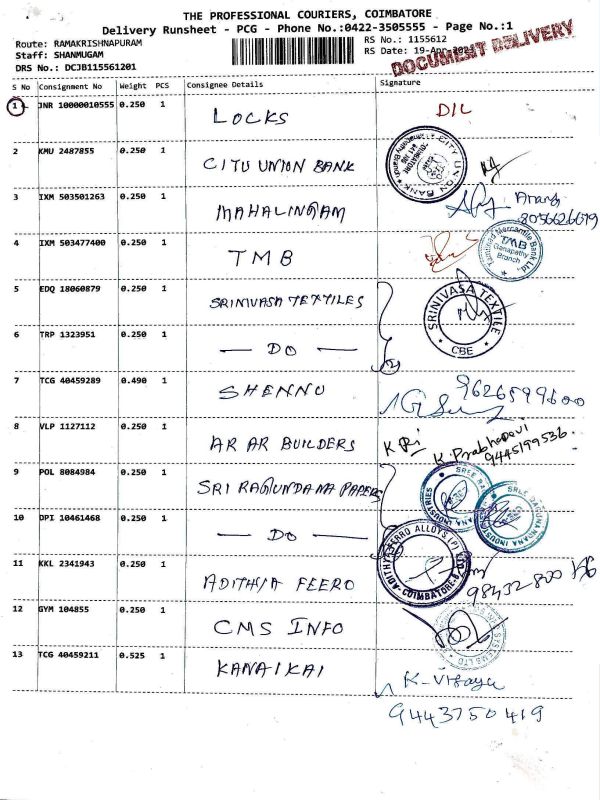 THE PROFESSIONAL COURIERS, COIMBATORE
Delivery Runsheet - PCG - Phone No.:0422-3505555 - Page No.:1
Route: RAMAKRISHNAPURAM
RS No.: 1155612
Staff: SHANMUGAM
RS Date: 19-Apr-2021
DRS No.: DCJB115561201
DOCUMENT DELIVERY
S No Consignment No Weight PCS Consignee Details Signature
1 JNR 10000010555 0.250 1 LOCKS D/L
2 KMU 2487855 0.250 1 CITU UNION BANK
CITY UNION BANK
3 IXM 503501263 0.250 1 MAHALINGAM
8056626679
4 IXM 503477400 0.250 1 TMB
Tamilnad Mercantile Bank Ltd.,
TMB
Ganapathy
Branch
5 EDQ 18060879 0.250 1 SRINIVASA TEXTILES
SRINIVASA TEXTILE
CBE
6 TRP 1323951 0.250 1 — DO — 2
7 TCG 40459289 0.490 1 SHENNU 9626599600
8 VLP 1127112 0.250 1 AR AR BUILDERS
K. Prabhadevi
9445199536
9 POL 8084984 0.250 1 SRI RAGUNDANA PAPERS
INDUSTRIES
10 DPI 10461468 0.250 1 — DO —
11 KKL 2341943 0.250 1 ADITHYA FEERO
ADITHYA FERRO ALLOYS (P) LTD
COIMBATORE
12 GYM 104855 0.250 1 CMS INFO
13 TCG 40459211 0.525 1 KANAIKAI
K-Vijaya
9443750419